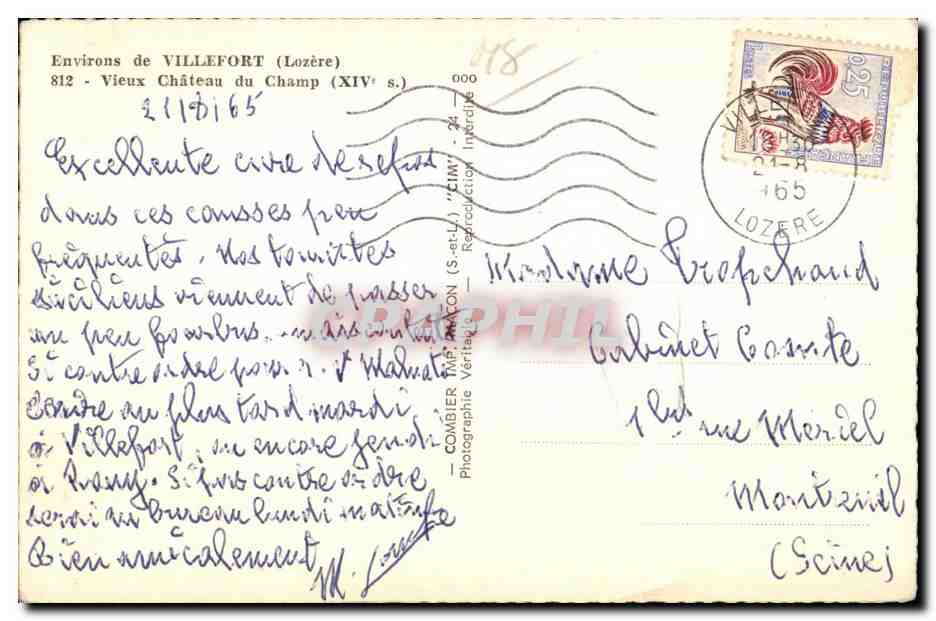 Environs de VILLEFORT (Lozère)
812 - Vieux Château du Champ (XIVe s.)
21/8/65
Excellente cure de repos
dans ces causses peu
fréquentés. Nos touristes
siciliens viennent de passer
un peu fourbus. mais contents
Si contre ordre pour
écrire au plus tard mardi
à Villefort, ou encore jeudi
à Rosny. Si pas contre ordre
serai au bureau lundi matin
Bien amicalement
M. Comte
48
000
— COMBIER IMP. MACON (S.-et-L.) "CIM" — 24 —
Photographie Véritable — Reproduction Interdite
CPAPHIL
0,25
POSTES
21-8
1965
LOZERE
Madame Tropchaud
Cabinet Comte
1 bis rue Mériel
Montreuil
(Seine)